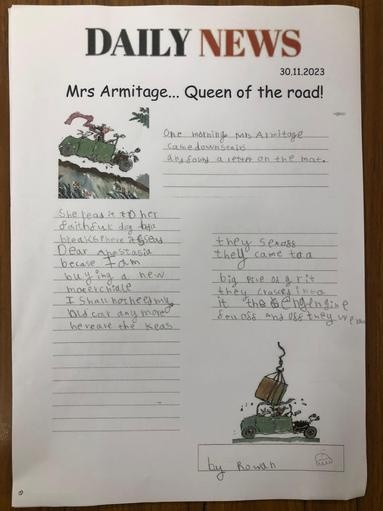 DAILY NEWS
30.11.2023
Mrs Armitage... Queen of the road!
One morning Mrs Armitage
came downstairs
and found a letter on the mat.
She read it to her
faithful dog
breakspeare it seas
Dear Anastasia
becase I am
buying a new
I Shall not need my
old car any more
here are the keas
they
they came too
big pile of grit
they crased into
it the engine
fell off and off they
by Rowan